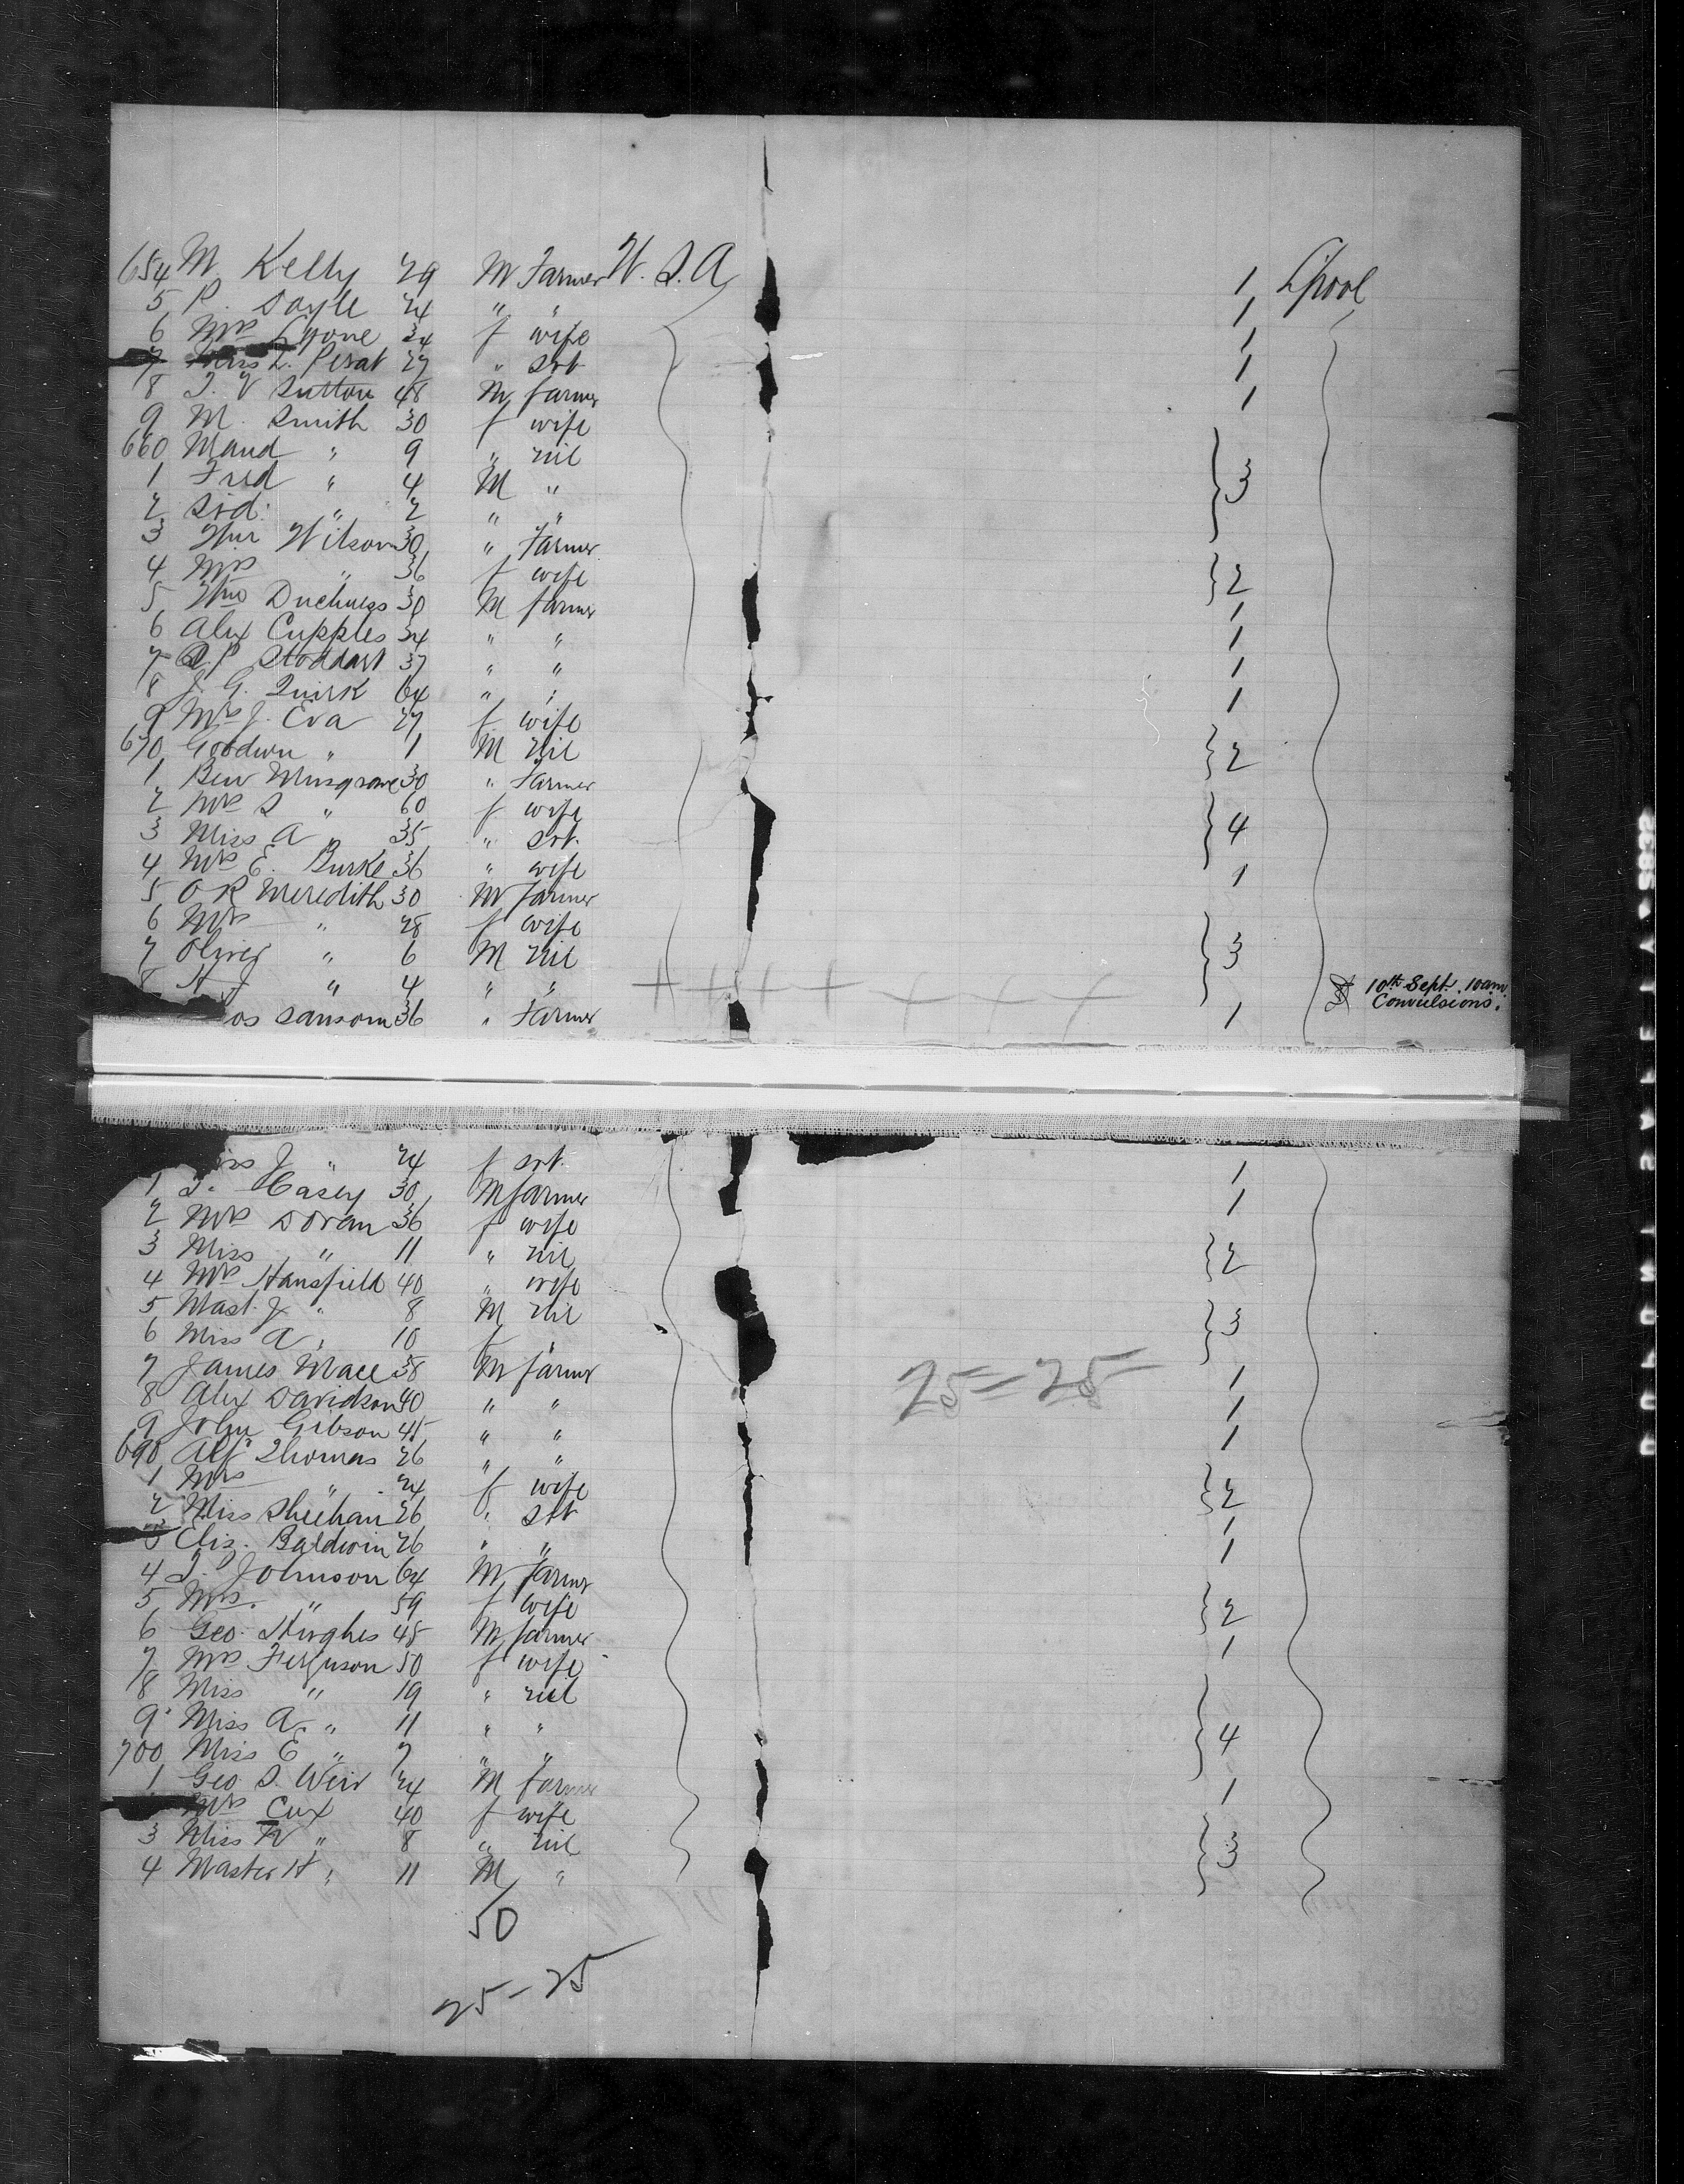 654 M. Kelly 29 M Farmer U.S.A 1 L'pool
5 P. Doyle 24 " " 1
6 Mrs Lyone 34 f wife 1
7 Miss L. Perat 27 " Srt 1
8 T. V Sutton 48 M farmer 1
9 M. Smith 30 f wife
660 Maud " 9 " nil
1 Fred " 4 M " 3
2 Sid: " 2 " "
3 Wm Wilson 30 " Farmer
4 Mrs " 36 f wife 2
5 Wm 30 M farmer 1
6 Alex Cupples 34 " " 1
7 Stoddart 37 " " 1
8 J. G. Quirk 64 " " 1
9 Mrs J. Eva 27 f wife
670 Goodwin " 1 M nil 2
1 Ben Musgrave 30 " Farmer
2 Mrs S " 60 f wife 4
3 Miss A " 35 " Srt.
4 Mrs E. Burke 36 " wife 1
5 O R Meredith 30 M Farmer
6 Mrs " 28 f wife
7 Oliver " 6 M nil 3
8 H J " 4 " " 10th Sept. 10am
Convulsions.
os Sansom 36 " Farmer 1
iss J " 24 f Srt. 1
1 T. Casey 30 M farmer 1
2 Mrs Doran 36 f wife
3 Miss " 11 " nil 2
4 Mrs Hansfield 40 " wife
5 Mast. J " 8 M nil 3
6 Miss A " 10 f "
7 James Mace 38 M farmer 1
8 Alex Davidson 40 " " 1
9 John Gibson 45 " " 1
25 = 25
690 Alf Thomas 26 " "
1 Mrs " 24 f wife 2
2 Miss Sheehan 26 " Srt 1
3 Eliz. Baldwin 26 " " 1
4 T. Johnson 64 M Farmer
5 Mrs. " 59 f wife 2
6 Geo. Hughes 45 M farmer 1
7 Mrs Ferguson 50 f wife
8 Miss " 19 " nil
9 Miss A " 11 " " 4
700 Miss E " 7 " "
1 Geo. S. Weir 24 M Farmer 1
Mrs Cux 40 f wife
3 Miss W " 8 " nil 3
4 Master H " 11 M "
50
25 - 25